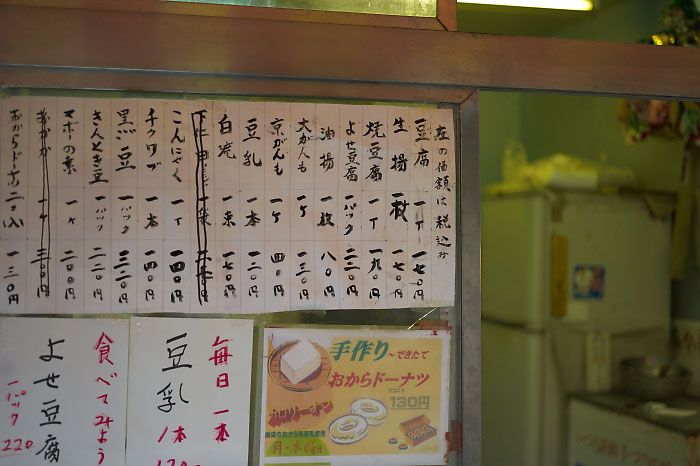 左の価額は税込み
豆腐 一丁 一七〇円
生揚 一枚 一七〇円
焼豆腐 一丁 一九〇円
よせ豆腐 一パック 二二〇円
油揚 一枚 八〇円
大がんも 一ケ 一三〇円
京がんも 一ケ 四〇円
豆乳 一本 一二〇円
白滝 一束 一七〇円
こんにゃく 一丁 一四〇円
チクワブ 一本 一四〇円
黒豆 一パック 三二〇円
きんとき豆 一パック 二二〇円
マボーの素 一ケ 二〇〇円
おから 一ケ
おからドーナツ 二コ入 一三〇円
毎日一本
豆乳
1本
食べてみよう
よせ豆腐
一パック 220
手作り～できたて
おからドーナツ
130円
月・木